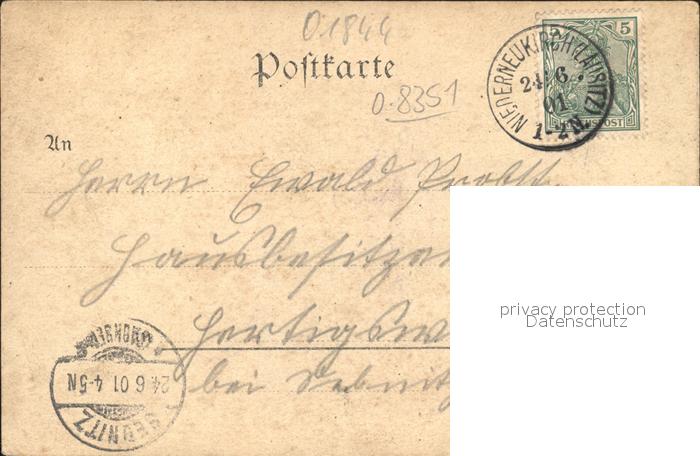 O 1844
Postkarte
O.8351
5
NIEDERNEUKIRCH (LAUSITZ)
24.6.
01
1-2 N.
REICHSPOST
An
Herrn Ewald Probst.
Hausbesitzer
Hertigsw
bei Sebnitz
SEBNITZ
24 6 01 4-5N
privacy protection
Datenschutz